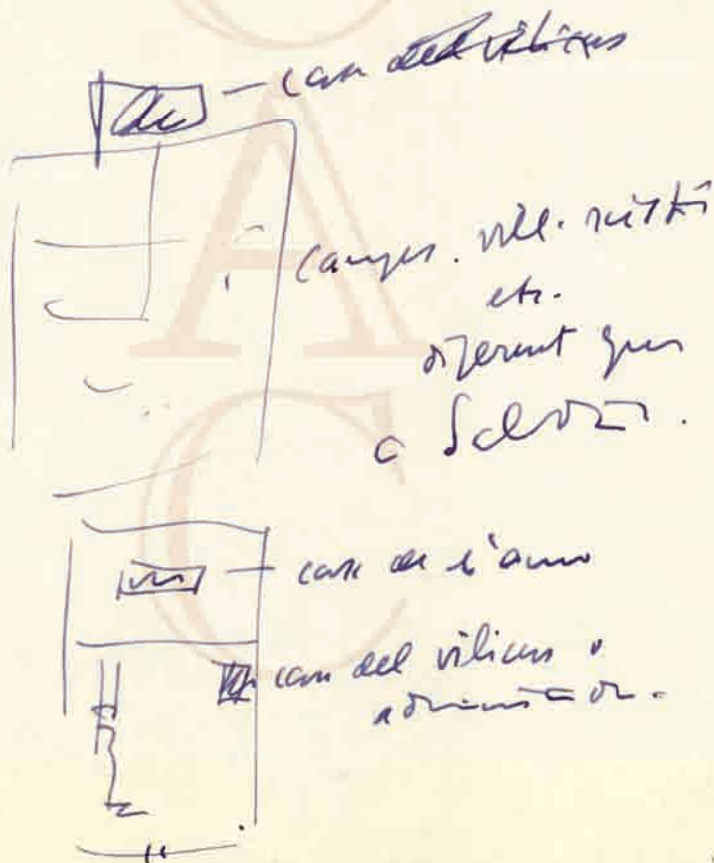 casa del vilicus
Camps. vil. rústic
etc.
diferent que
a
casa de l'amo
casa del vilicus o
administrador.